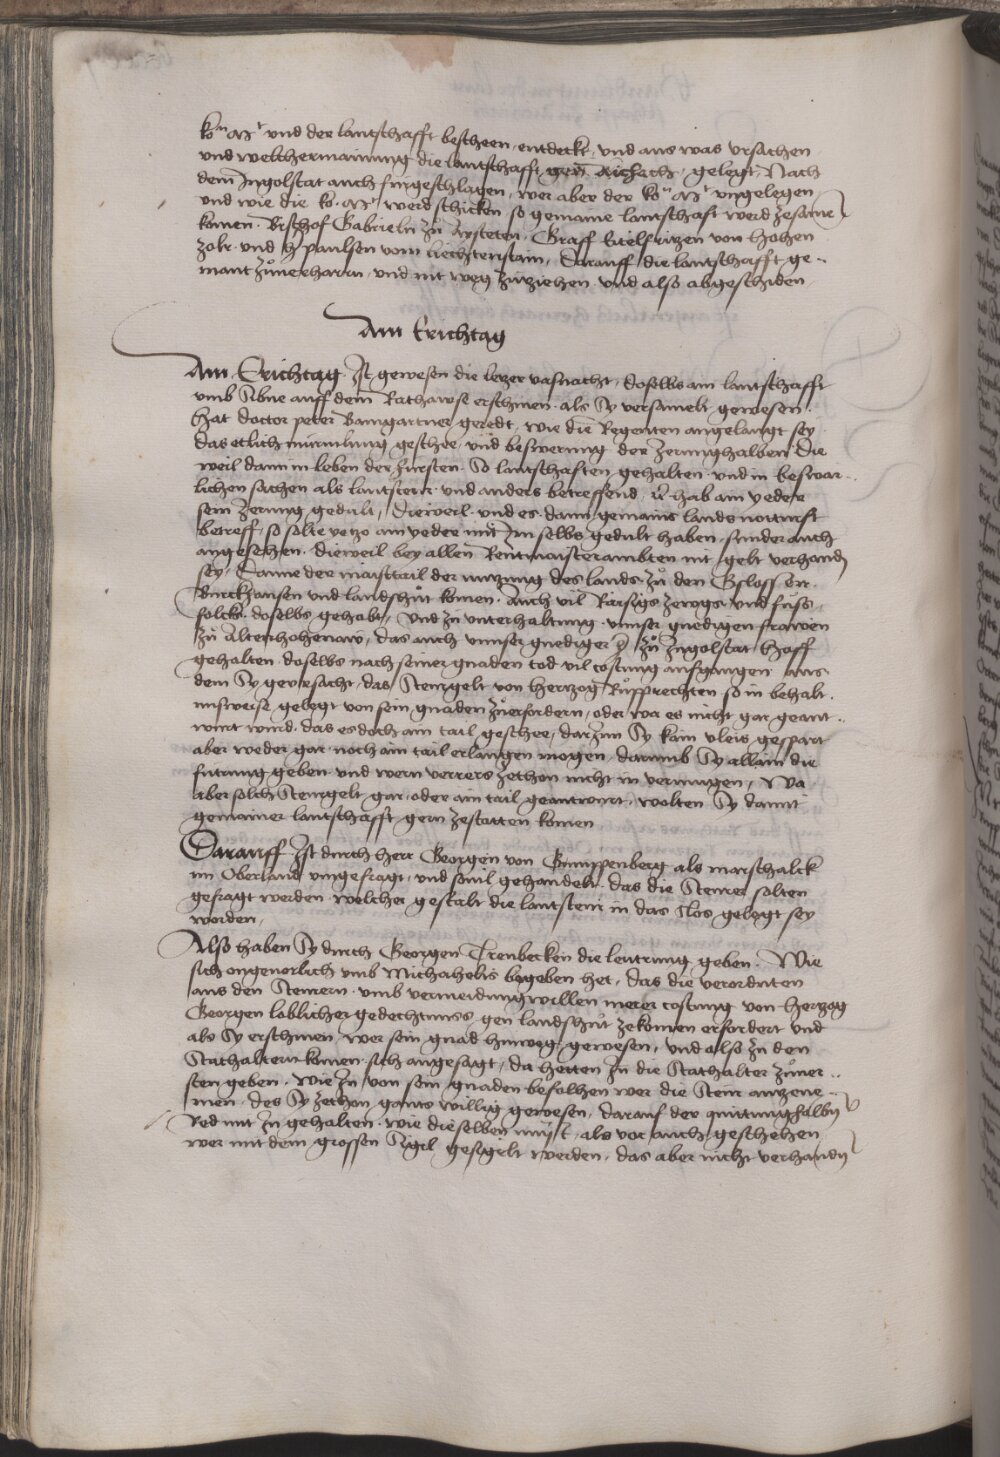 ko͞n Mt und der lantschafft bescheen, entdeckt, und aus was ursachen
und welchermainung die lantschafft gen Aichach, gelegt, Nach
dem Ingolstat auch furgeschlagen, wer aber der ko͞n Mt ungelegen
und wie die ko. Mt werd schicken, so gemaine lantschaft werd zesame
komen. Bischof Gabrieln zu Aysteten, Graff Eitlfritzen von hohen
zolr. und h paulsen vom liechtenstain, Darauff, die lantschafft ge-
mant zuuerharrn, und nit weg zuziehen und also abgeschiden
Am Erichtag
Am Erichtag Ist gewesen die letzer vasnacht, daselbs ain lantschafft
umb Ubne auff dem Rathawse erschinen. als Sy versamelt gewesen.
Hat doctor peter Baumgartner geredt, wie die Regenten angelangt sey
das etlich murmlung geschee, und beswerung der zerunghalben Die
weil dann in leben der fürsten. So lantschaften gehalten und in beswar-
lichen sachen als lantstewr und anders betreffend, hab ain yeder
sein zerung geduld, Dieweil und es dann gemains lands notturft
betreff, so solte yetzo ain yeder mit Im selbs gedult haben, sunder auch
angesehen. dieweil bey allen Rentmaisterambten nit gelt verhandn
sey, Danne der maisttail der nutzung des lands zu den Gslossern
Burckhausen und landshut komen. Auch vil Raisigs zewgs und fuß-
folcks. doselbs gehabt, Und zu unterhaltung unnser gnedigen frawen
zu Altenhohenaw, das auch unnser gnediger h zu Ingolstat, hoff
gehalten. doselbs nach seiner gnaden tod vil costung aufgangen aus
dem Sy geursacht, das Stewrgelt von hertzog Ruprechten so in behalt-
nusweise gelegt von sein gnaden zuerfordern, oder wo es nicht gar geant-
wurt wurd. das es doch ain tail geschee, darzun Sy kain vleis gespart
aber weder gar noch ain tail erlangen mogen, darumb Sy allain die
futrung geben und wern verrers zethon nicht in vermugen, Wo
aber solch Stewrgelt gar oder ain tail geantwurt, wolten Sy damit
gemainer lantschafft gern zestatten komen
Darauff Ist durch herr Georgen von Gumppenberg als marschalck
im Oberland umgefragt, und sovil gehandelt. das die Stewrer solten
gefragt werden welcher gestalt die lantstewr in das Slos gelegt sey
worden,
Also haben Sy durch Georgen Trenbecken die leutrung geben. Wie
sich ongeuorlich umb Michahelis begeben het, das die verordnten
aus den Stewrern. umb vermeidungwillen merer costung von Hertzog
Georgen loblicher gedechtnuss gen landshut zekomen erfordert und
als Sy erschinen, wer sein gnad hinweg gewesen, und also zu den
Stathaltern komen. sich angesagt, da hetten In die Stathalter zuuer-
steen geben. wie In von sein gnaden befolhen wer die Stewr anzene-
men, des Sy zethon gants willig gewesen, darauf der quittunghalbn
Red mit In gehalten. wie dieselben müst, als vor auch geschehen
wer mit dem grossen Sigil gesigelt werden, das aber nicht verhandn